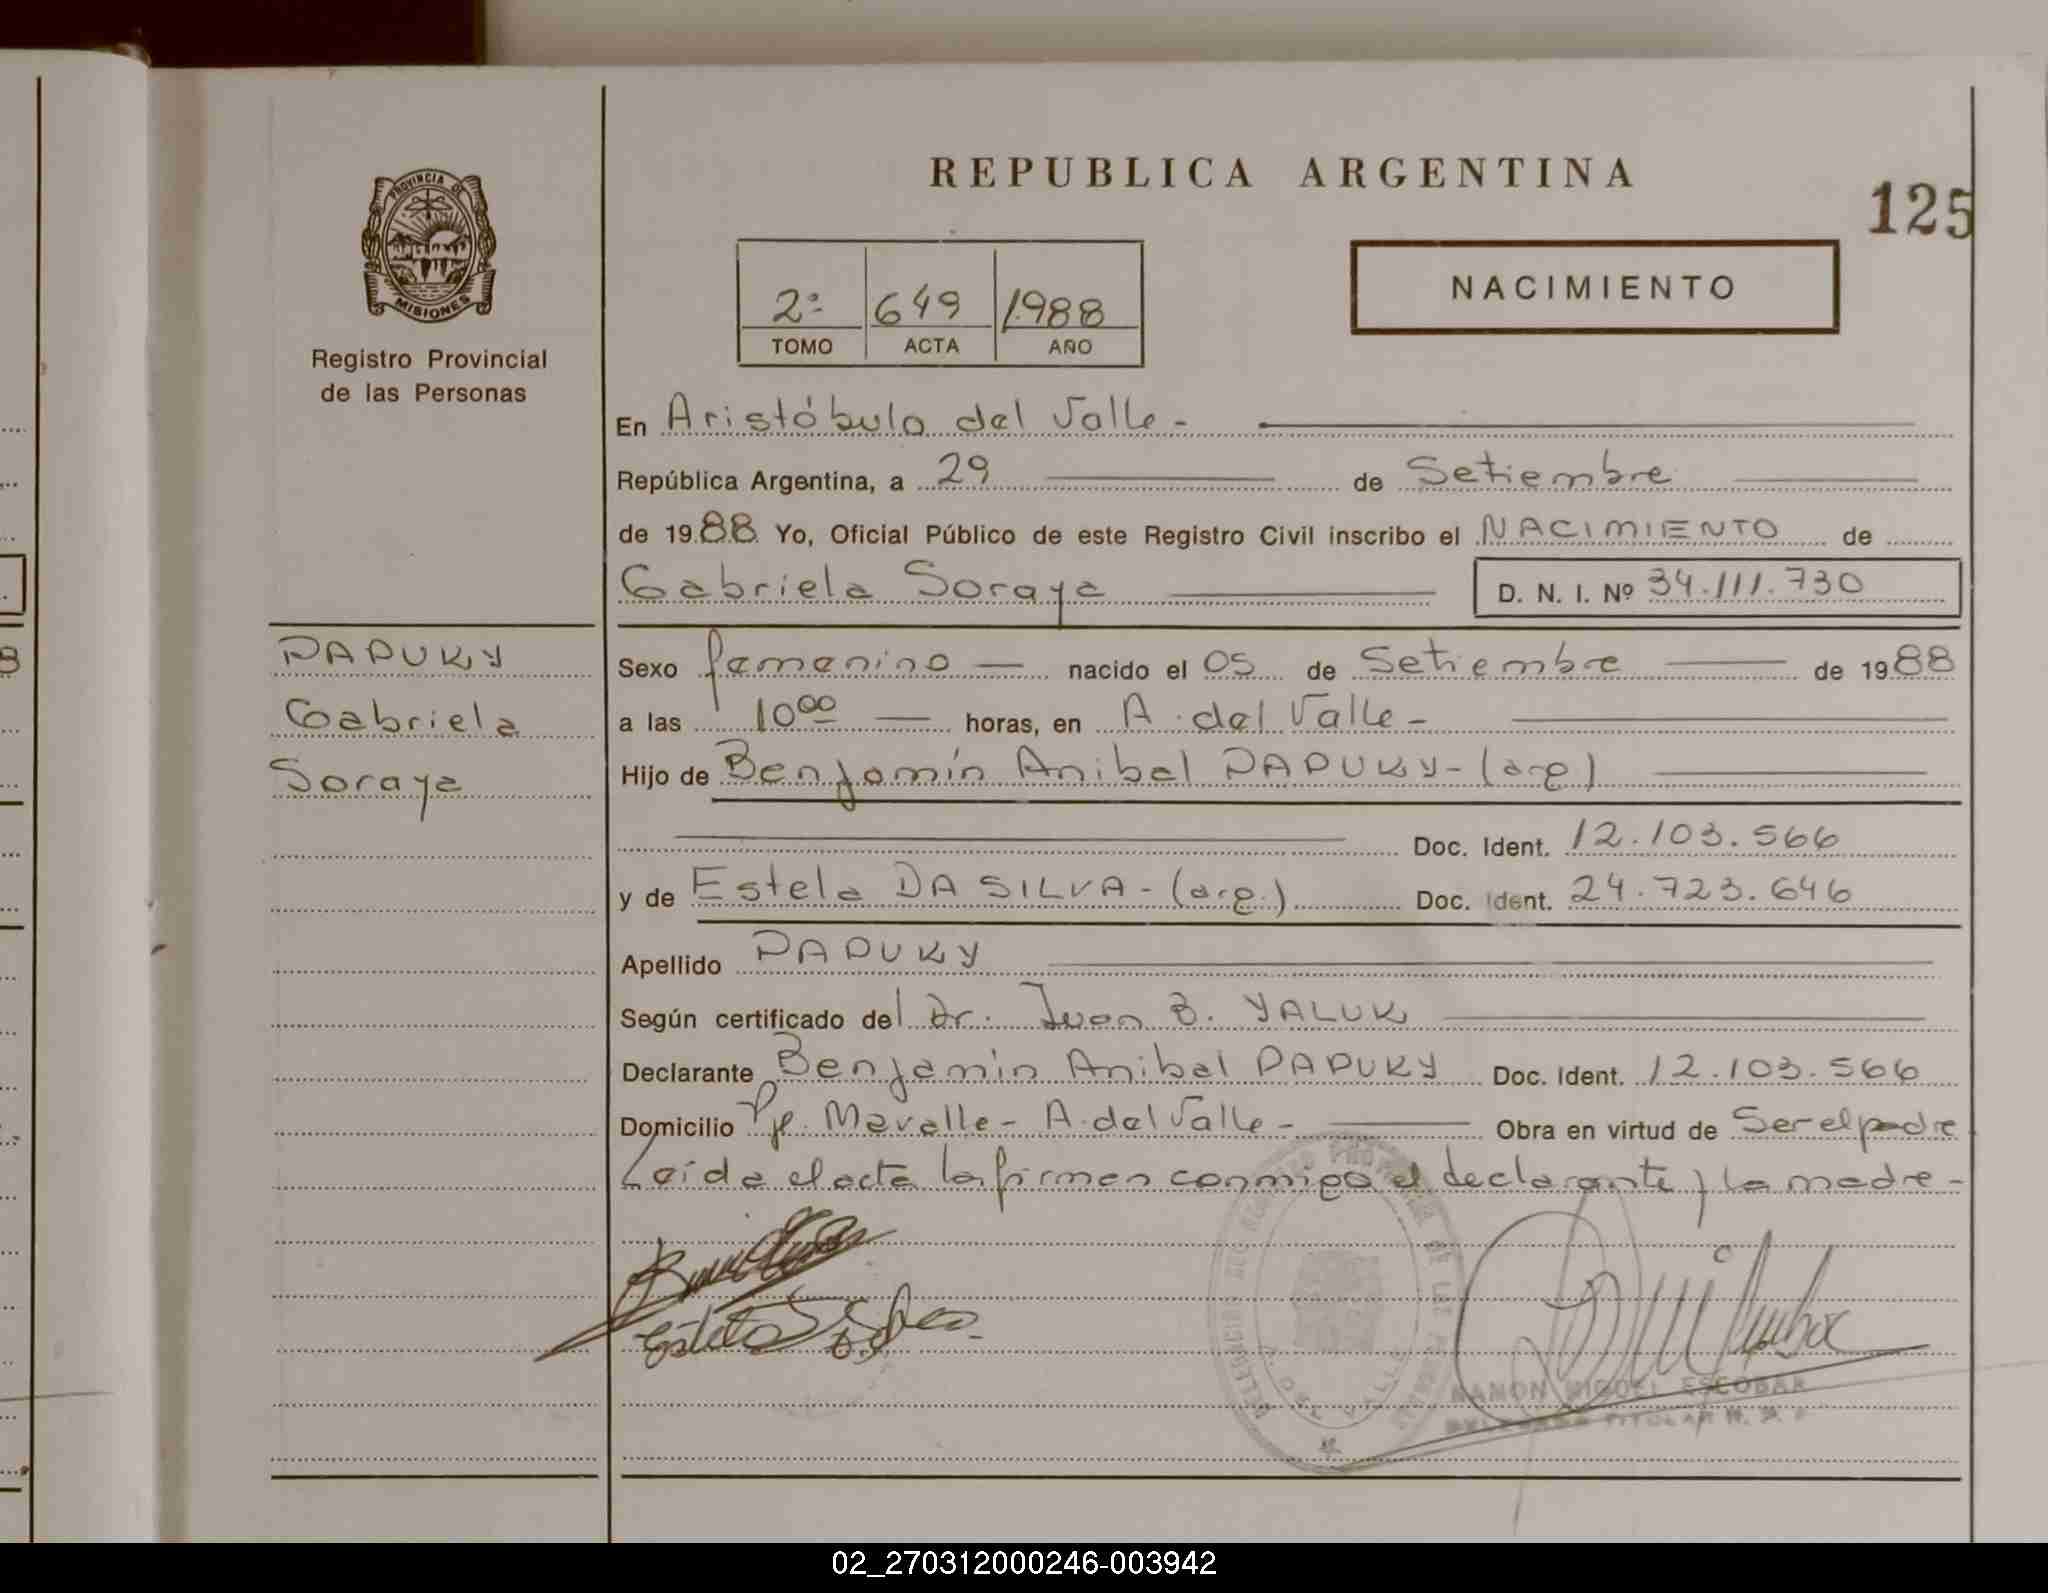 REPUBLICA ARGENTINA
125
PROVINCIA DE
MISIONES
Registro Provincial
de las Personas
2º 649 1988
TOMO ACTA AÑO
NACIMIENTO
En Aristóbulo del Valle -
República Argentina, a 29 de Setiembre
de 1988 Yo, Oficial Público de este Registro Civil inscribo el NACIMIENTO de
Gabriela Soraya D. N. I. Nº 34.111.730
PAPUKY
Gabriela
Soraya
Sexo femenino nacido el 05 de Setiembre de 1988
a las 10ºº horas, en A. del Valle -
Hijo de Benjamín Anibal PAPUKY - (arg)
Doc. Ident. 12.103.566
y de Estela DA SILVA - (arg.) Doc. Ident. 24.723.646
Apellido PAPUKY
Según certificado del Dr. Juan B. YALUK
Declarante Benjamín Anibal PAPUKY Doc. Ident. 12.103.566
Domicilio Pje. Mavalle - A. del Valle - Obra en virtud de Ser el padre
Leída el acta la firman conmigo el declarante y la madre -
RAMON MIGUEL ESCOBAR
02_270312000246-003942